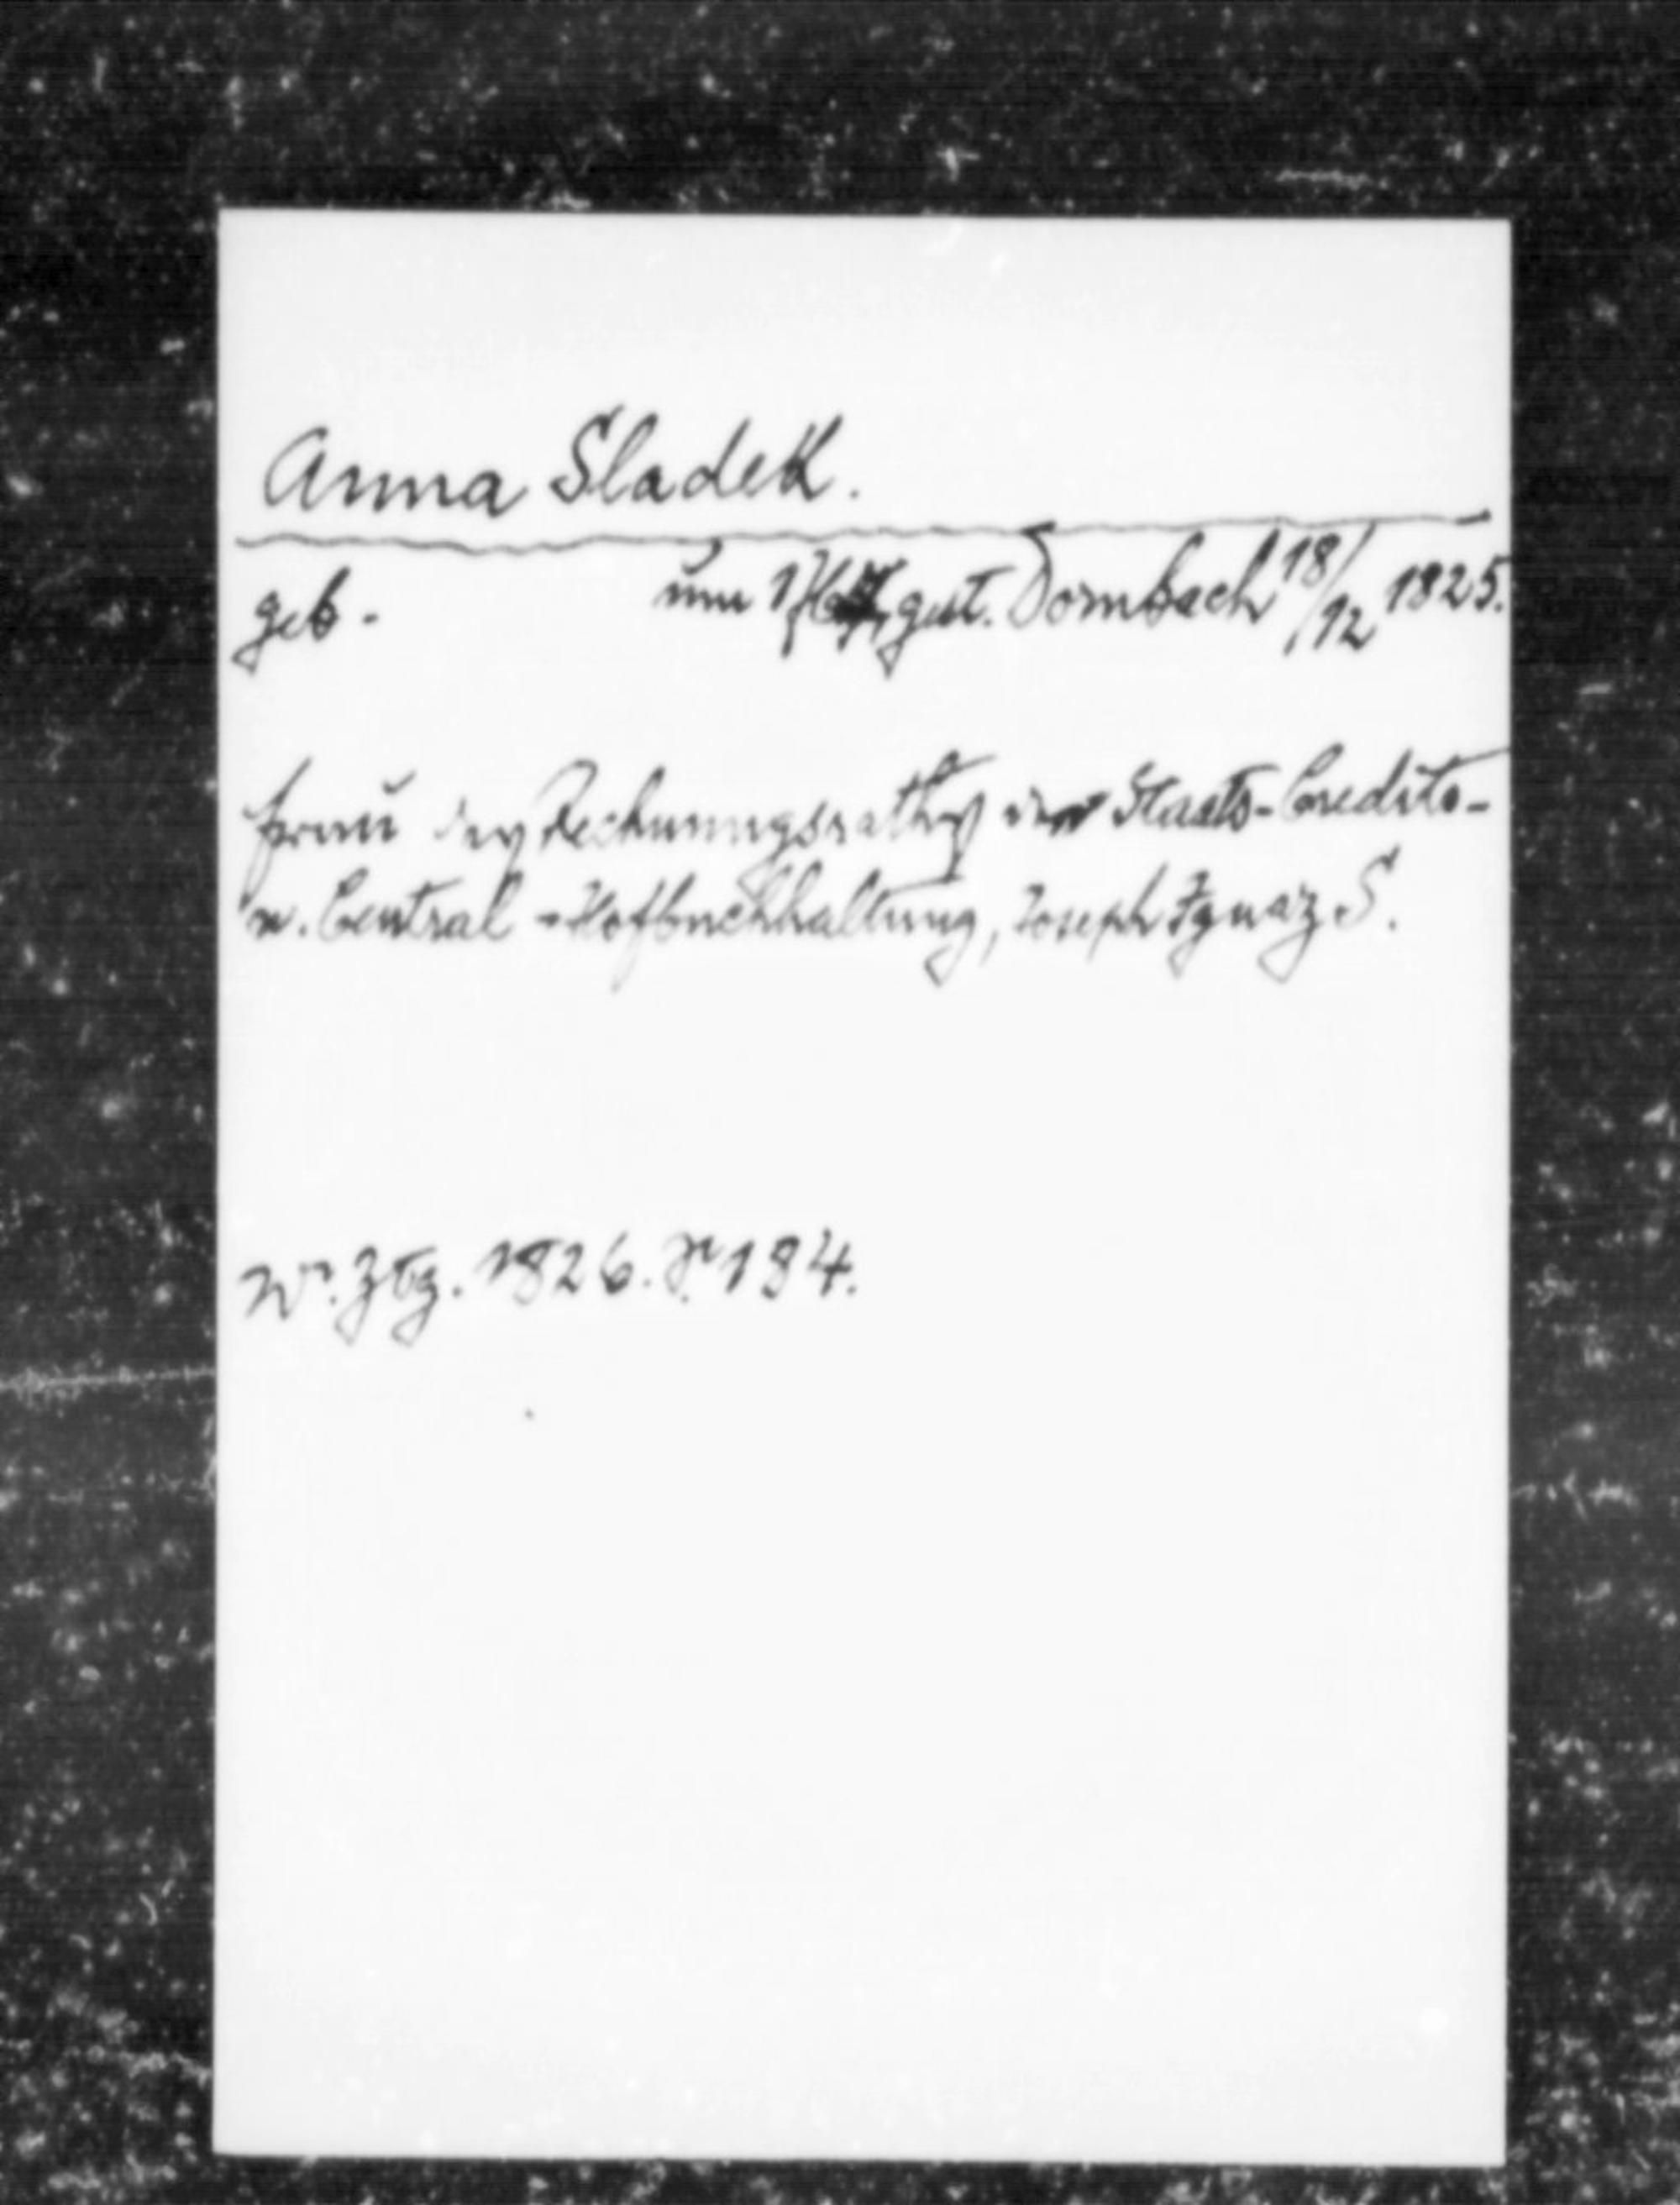 Anna Sladek.
geb. um gest. Dornbach 18/12 1825.
Frau des Rechnungsrathes der Staats-Credits-
u. Central-Hofbuchhaltung, Joseph Ignaz S.
Wr. Ztg. 1826. Nr 194.